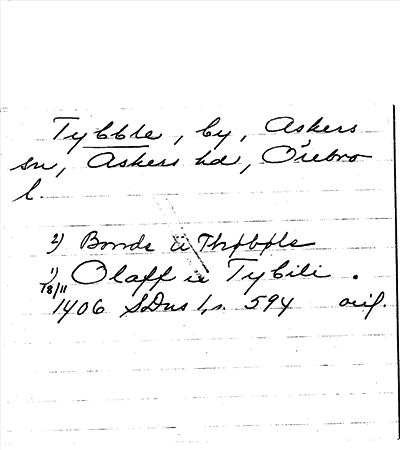 Tybble, by, Askers
sn, Askers hd, Örebro
l.
2) Bonde ii Thybble
1) Olaff ii Tybili .
18/11
1406 SDns 1, s. 594 orig.